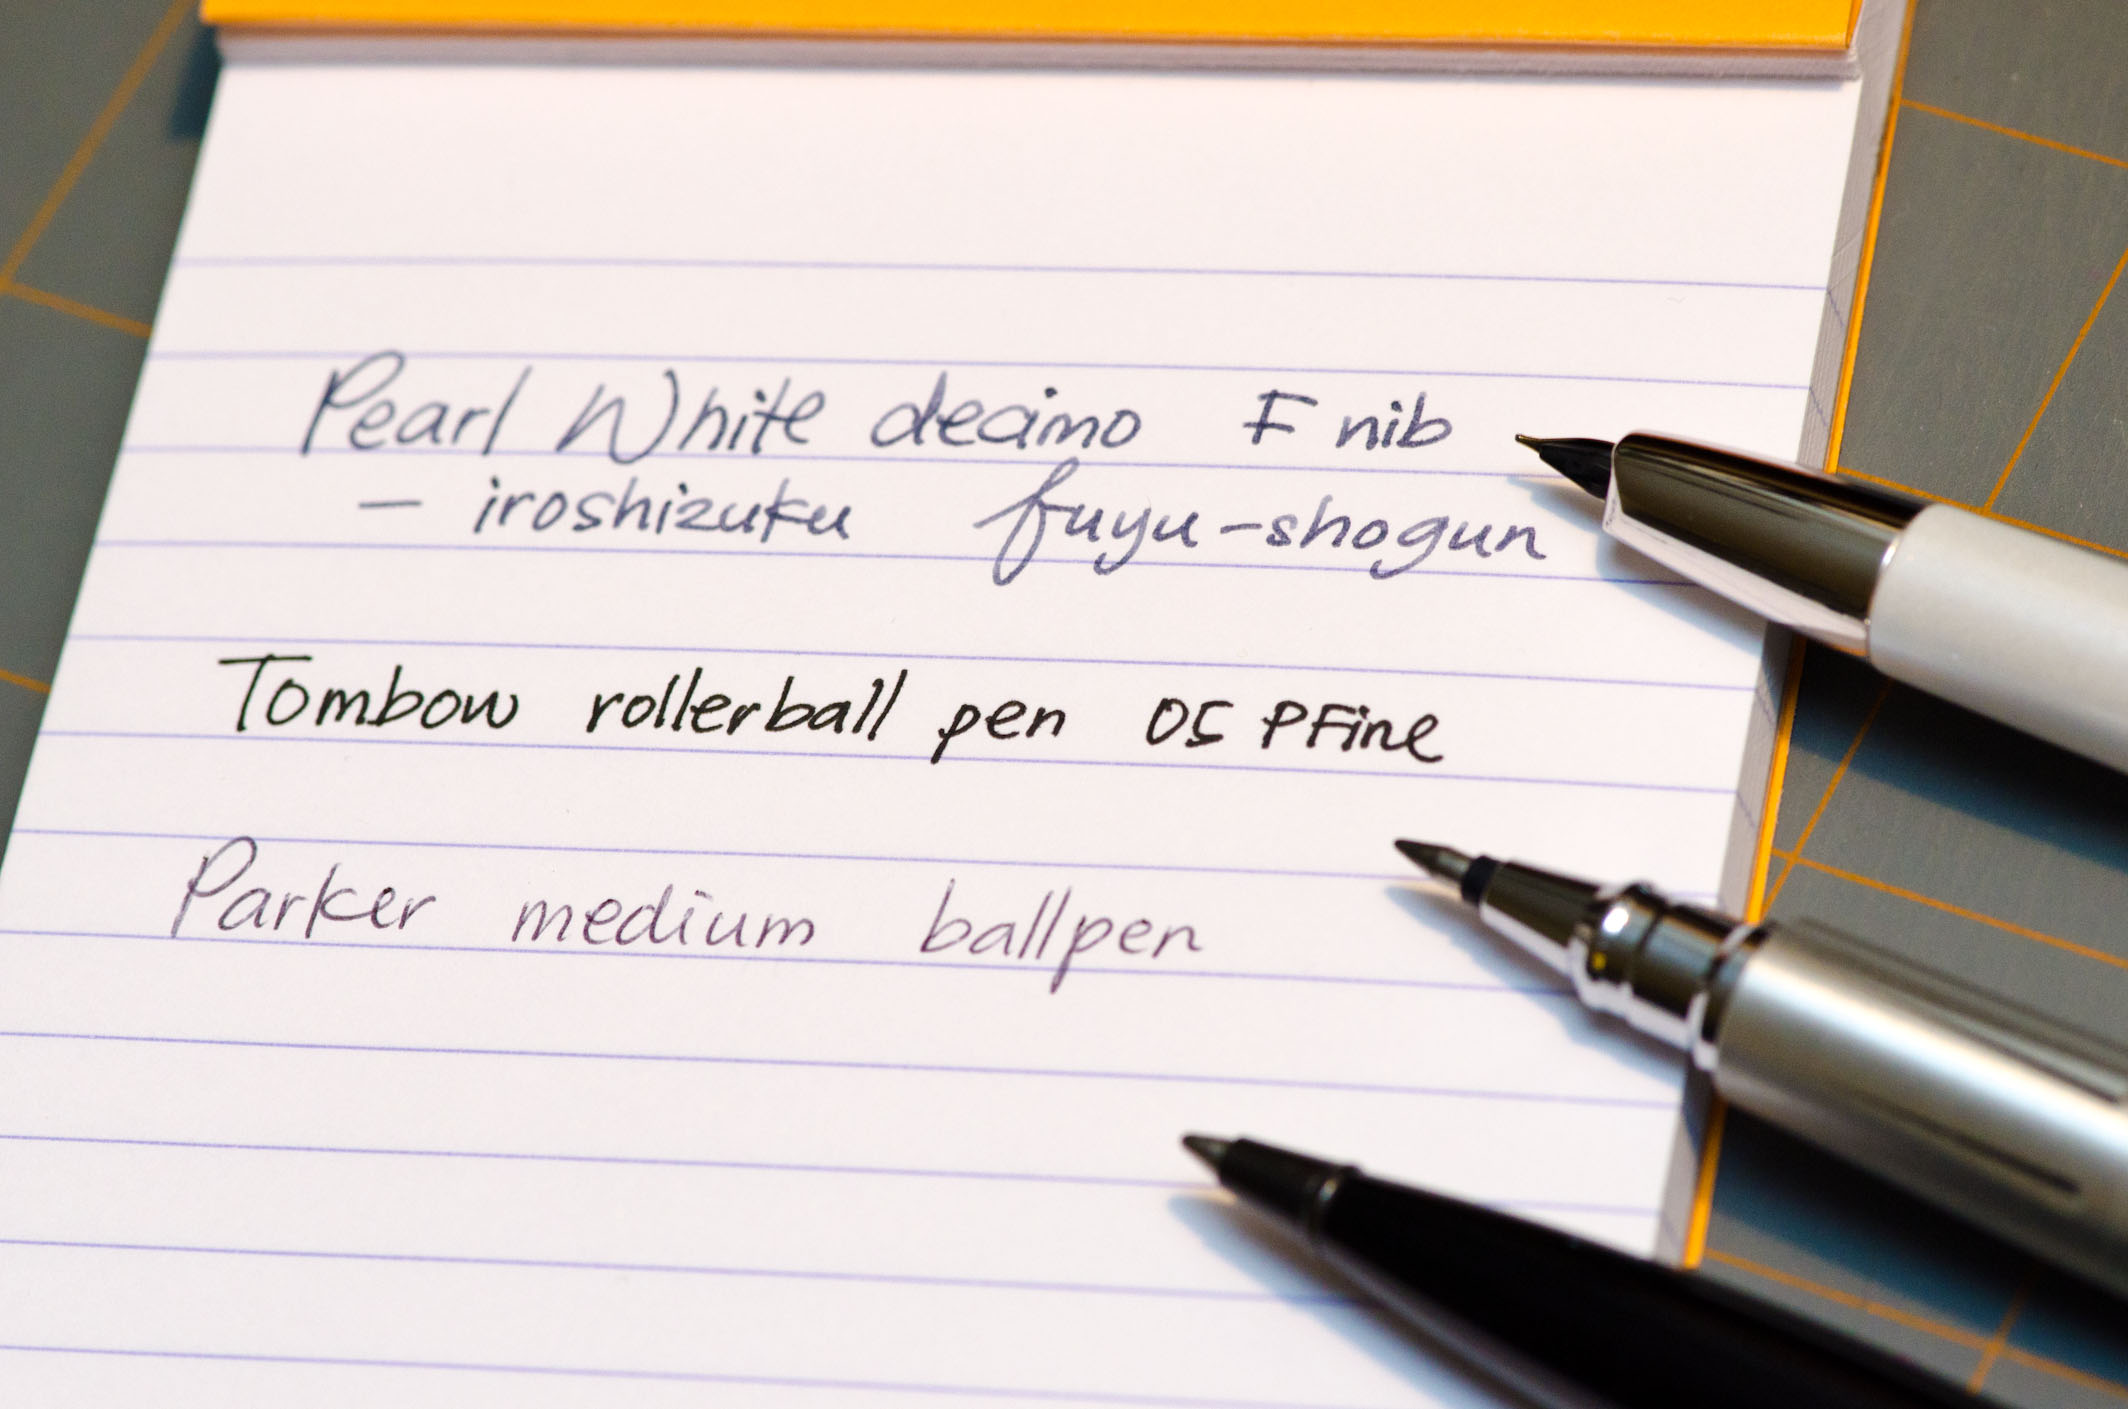 Pearl White decimo F nib
- iroshizuku fuyu-shogun
Tombow rollerball pen 05 PFine
Parker medium ballpen